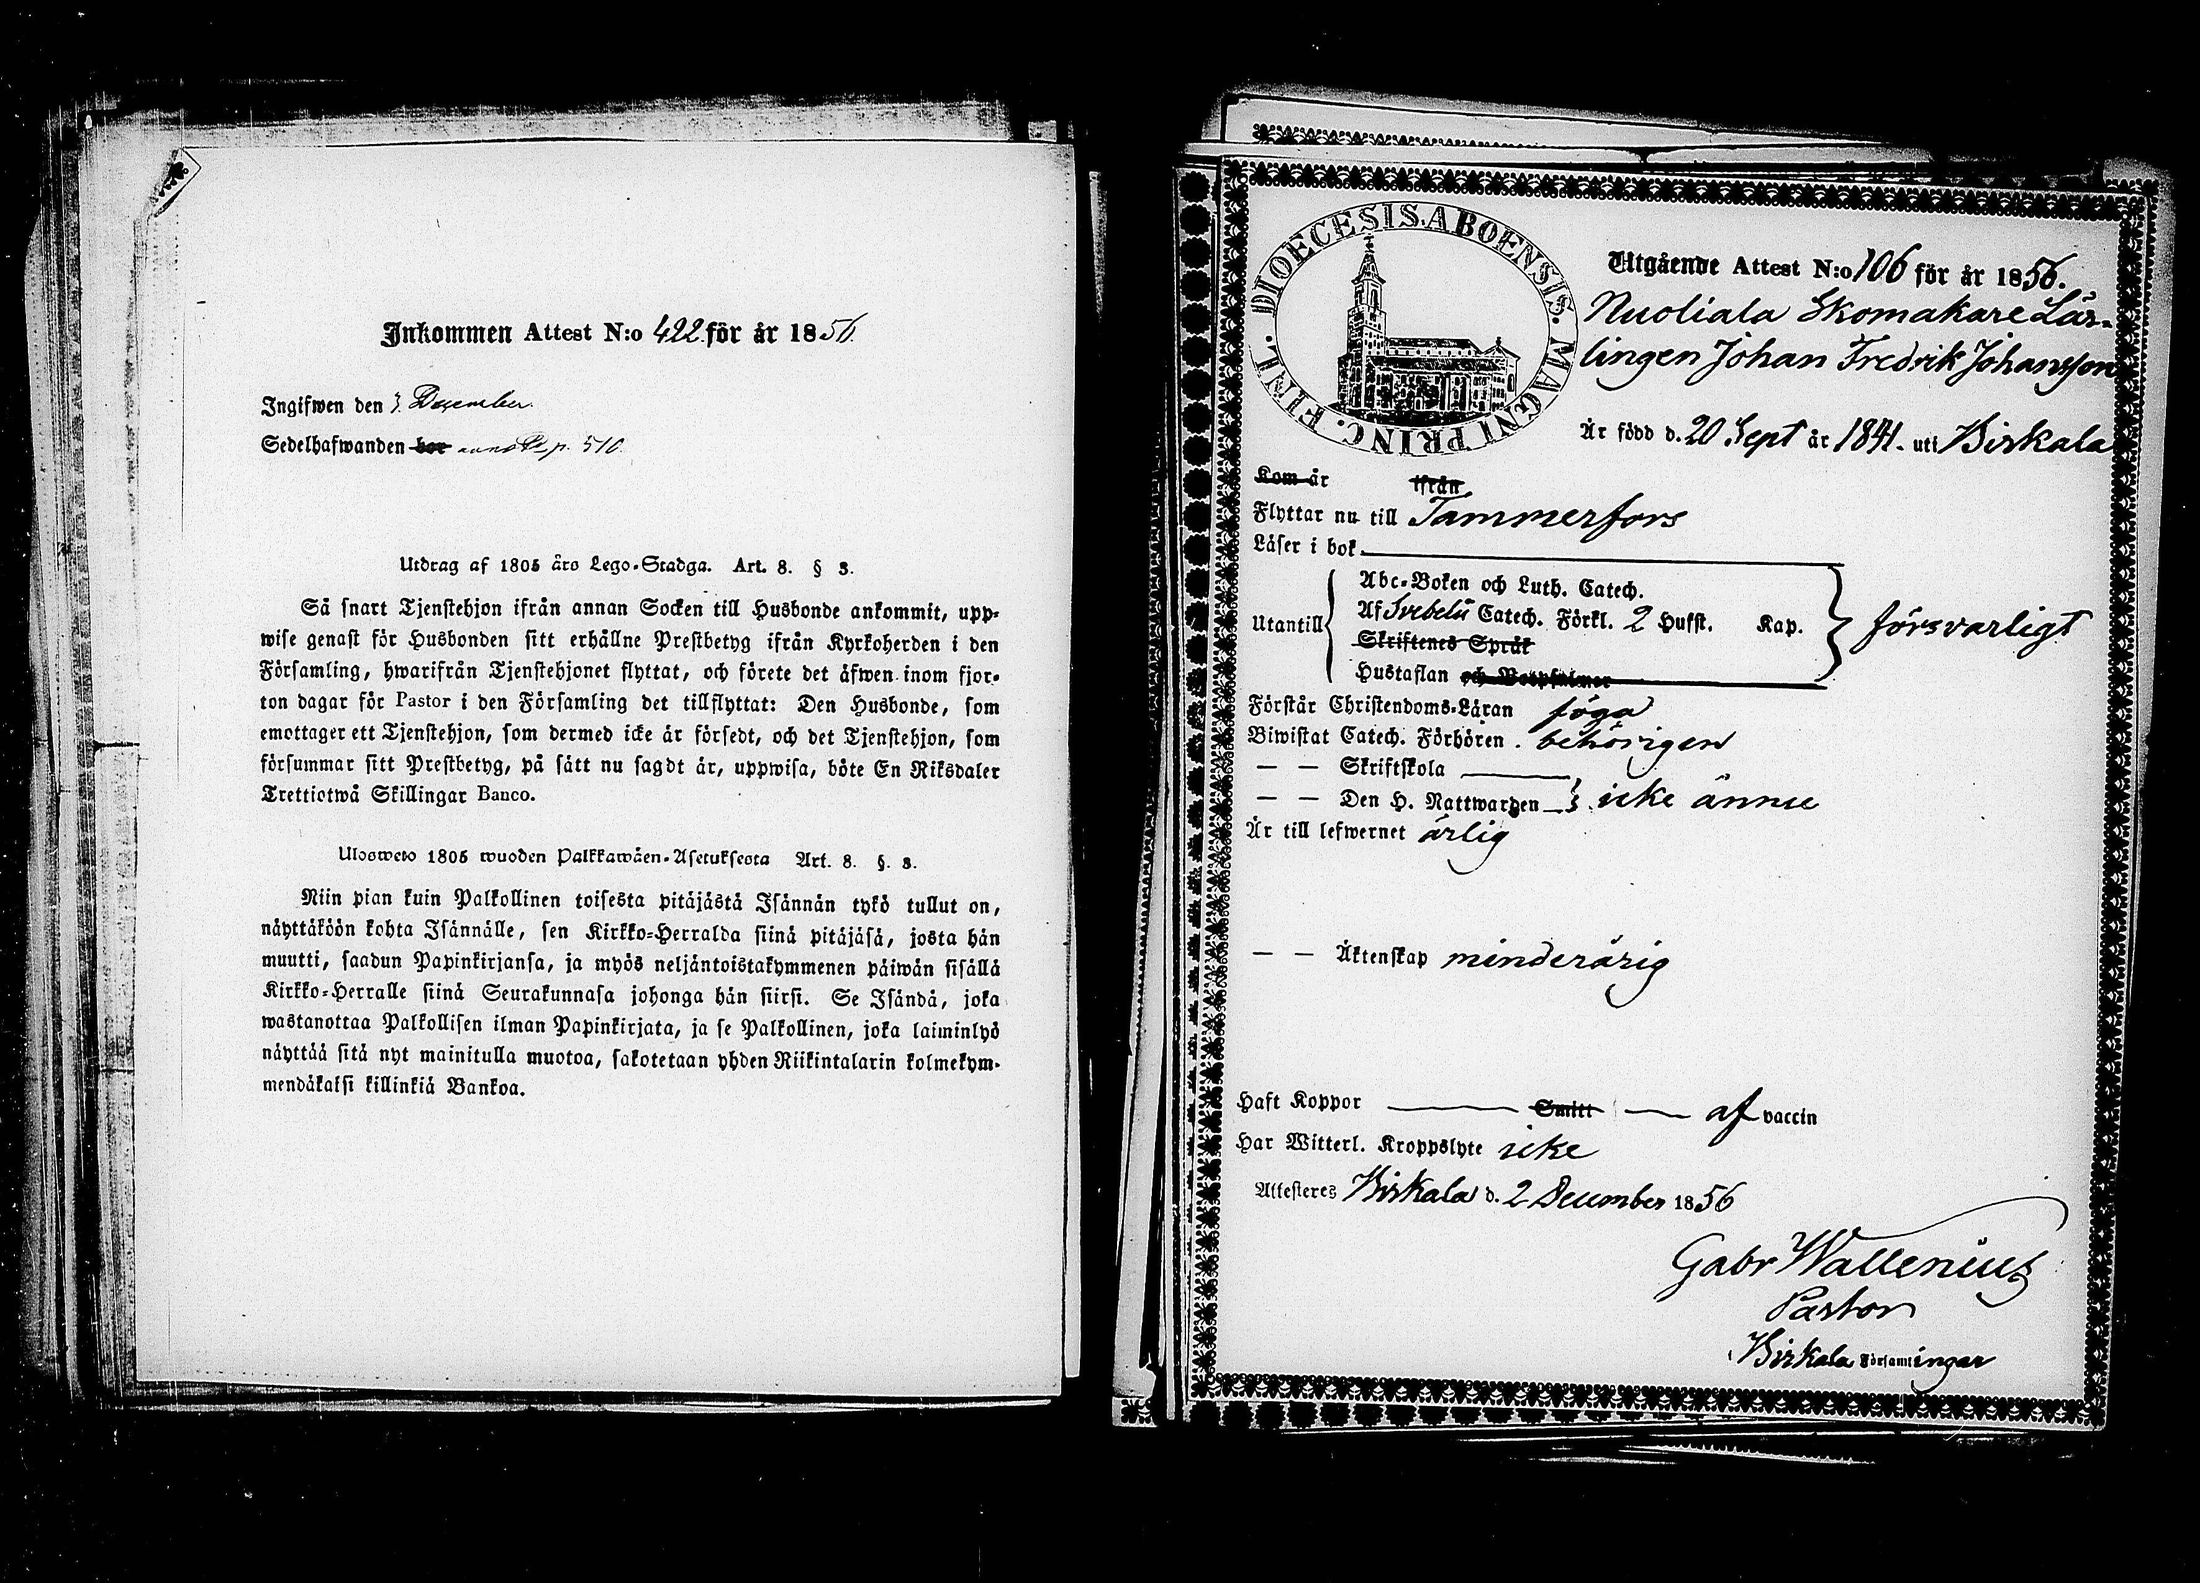 Inkommen Attest N:o 422 för år 1856.
Ingifwen den 3 December
Sedelhafwanden bor p. 510.
Utdrag af 1805 års Lego-Stadga. Art. 8. § 3.
Så snart Tjenstehjon ifrån annan Socken till Husbonde ankommit, upp-
wise genast för Husbonden sitt erhållne Prestbetyg ifrån Kyrkoherden i den
Församling, hwarifrån Tjenstehjonet flyttat, och förete det äfwen inom fjor-
ton dagar för Pastor i den Församling det tillflyttat: Den Husbonde, som
emottager ett Tjenstehjon, som dermed icke är försedt, och det Tjenstehjon, som
försummar sitt Prestbetyg, på sätt nu sagdt är, uppwisa, böte En Riksdaler
Trettiotwå Skillingar Banco.
Ulosweto 1805 wuoden Palkkawäen-Asetuksesta Art. 8. §. 3.
Niin pian kuin Palkollinen toisesta pitäjästä Isännän tykö tullut on,
näyttäköön kohta Isännälle, sen Kirkko-Herralda siinä pitäjäsä, josta hän
muutti, saadun Papinkirjansa, ja myös neljäntoistakymmenen päiwän sisällä
Kirkko-Herralle siinä Seurakunnasa johonga hän siirsi. Se Isändä, joka
wastanottaa Palkollisen ilman Papinkirjata, ja se Palkollinen, joka laiminlyö
näyttää sitä nyt mainitulla muotoa, sakotetaan yhden Riikintalarin kolmekym-
mendäkaksi killinkiä Bankoa.
DIOECESIS. ABOENSIS. MAGNI PRINC. FINL.
Utgående Attest N:o 106 för år 1856.
Nuoliala Skomakare Lär-
lingen Johan Fredrik Johansson
Är född d. 20 Sept år 1841. uti Birkala
Kom år ifrån
Flyttar nu till Tammerfors
Läser i bok
Abc-Boken och Luth. Catech.
Utantill Af Svebelii Catech. Förkl. 2 Hufst. Kap. försvarligt
Skriftenes Språk
Hustaflan och Botpsalmer
Förstår Christendoms-Läran föga
Biwistat Catech. Förhören. behörigen
— — Skriftskola
— — Den H. Nattwarden icke ännu
Är till lefwernet ärlig
— — Äktenskap minderårig
Haft Koppor Smitt af vaccin
Har Witterl. Kroppslyte icke
Attesteres Birkala d. 2 December 1856
Gabr Wallenius
Pastor
Birkala Församlingar